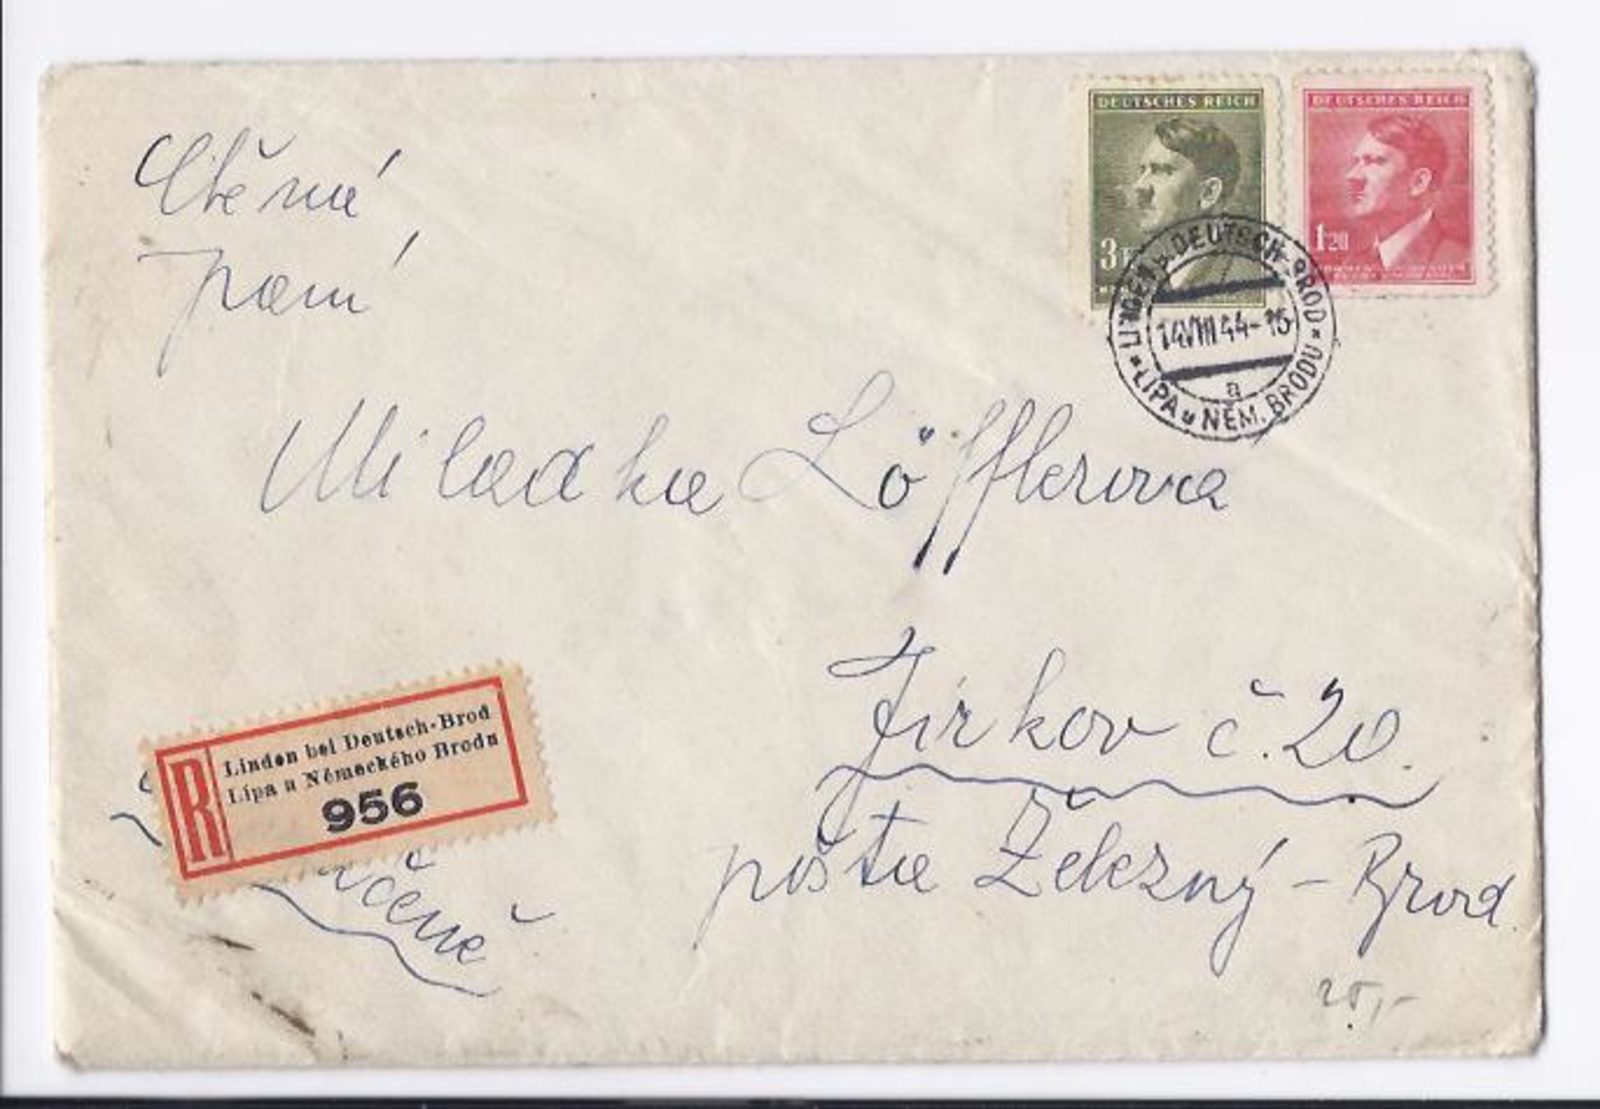 Ctěná
paní
DEUTSCHES REICH
3
DEUTSCHES REICH
1.20
LINDEN b. DEUTSCH-BROD
14.VIII 44-15
a
LÍPA u NĚM. BRODU
Miladka Löfflerova
Jirkov č. 20.
pošta Železný-Brod
R
Linden bei Deutsch-Brod
Lípa u Německého Brodu
956
20,-